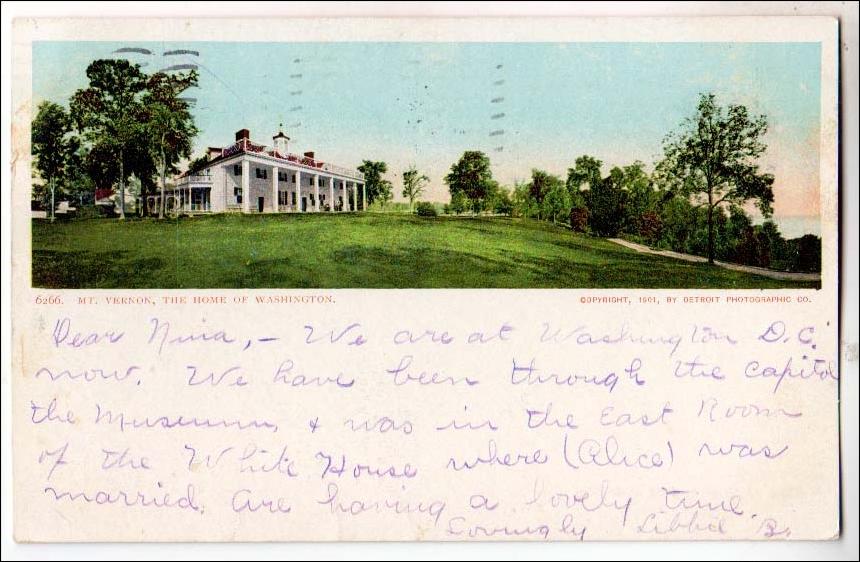 6266. MT. VERNON, THE HOME OF WASHINGTON.
COPYRIGHT, 1901, BY DETROIT PHOTOGRAPHIC CO.
Dear Nina, - We are at Washington D.C.
now. We have been through the Capitol
the Museum, & was in the East Room
of the White House where (Alice) was
married. Are having a lovely time.
Lovingly Libbie B.